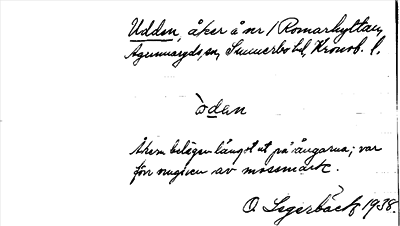 Udden, åker å nr 1 Romarhyltan,
Agunnaryds sn, Sunnerbo hd, Kronob. l.
òden
Åkern belägen långst ut på ängarna; var
förr omgiven av mossmark.
O. Segerbäck 1938.